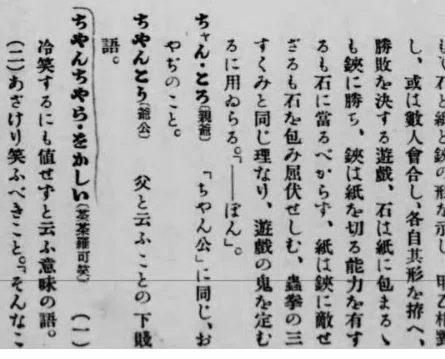 も石と紙と鋏の形を示し、甲乙相對
し、或は數人會合し、各自其形を拵へ、
勝敗を決する遊戲、石は紙に包まるゝ
も鋏に勝ち、鋏は紙を切る能力を有す
るも石に當るべからず、紙は鋏に敵せ
ざるも石を包み屈伏せしむ、蟲拳の三
すくみと同じ理なり、遊戲の鬼を定む
るに用ゐらる。「――ぽん」。
ちゃん・とろ(親爺) 「ちやん公」に同じ、お
やぢのこと。
ちやんとり(爺公) 父と云ふことの下賤
語。
ちやんちやら・をかしい(茶羅可笑) (一)
冷笑するにも値せずと云ふ意味の語。
(二)あざけり笑ふべきこと。「そんなこ